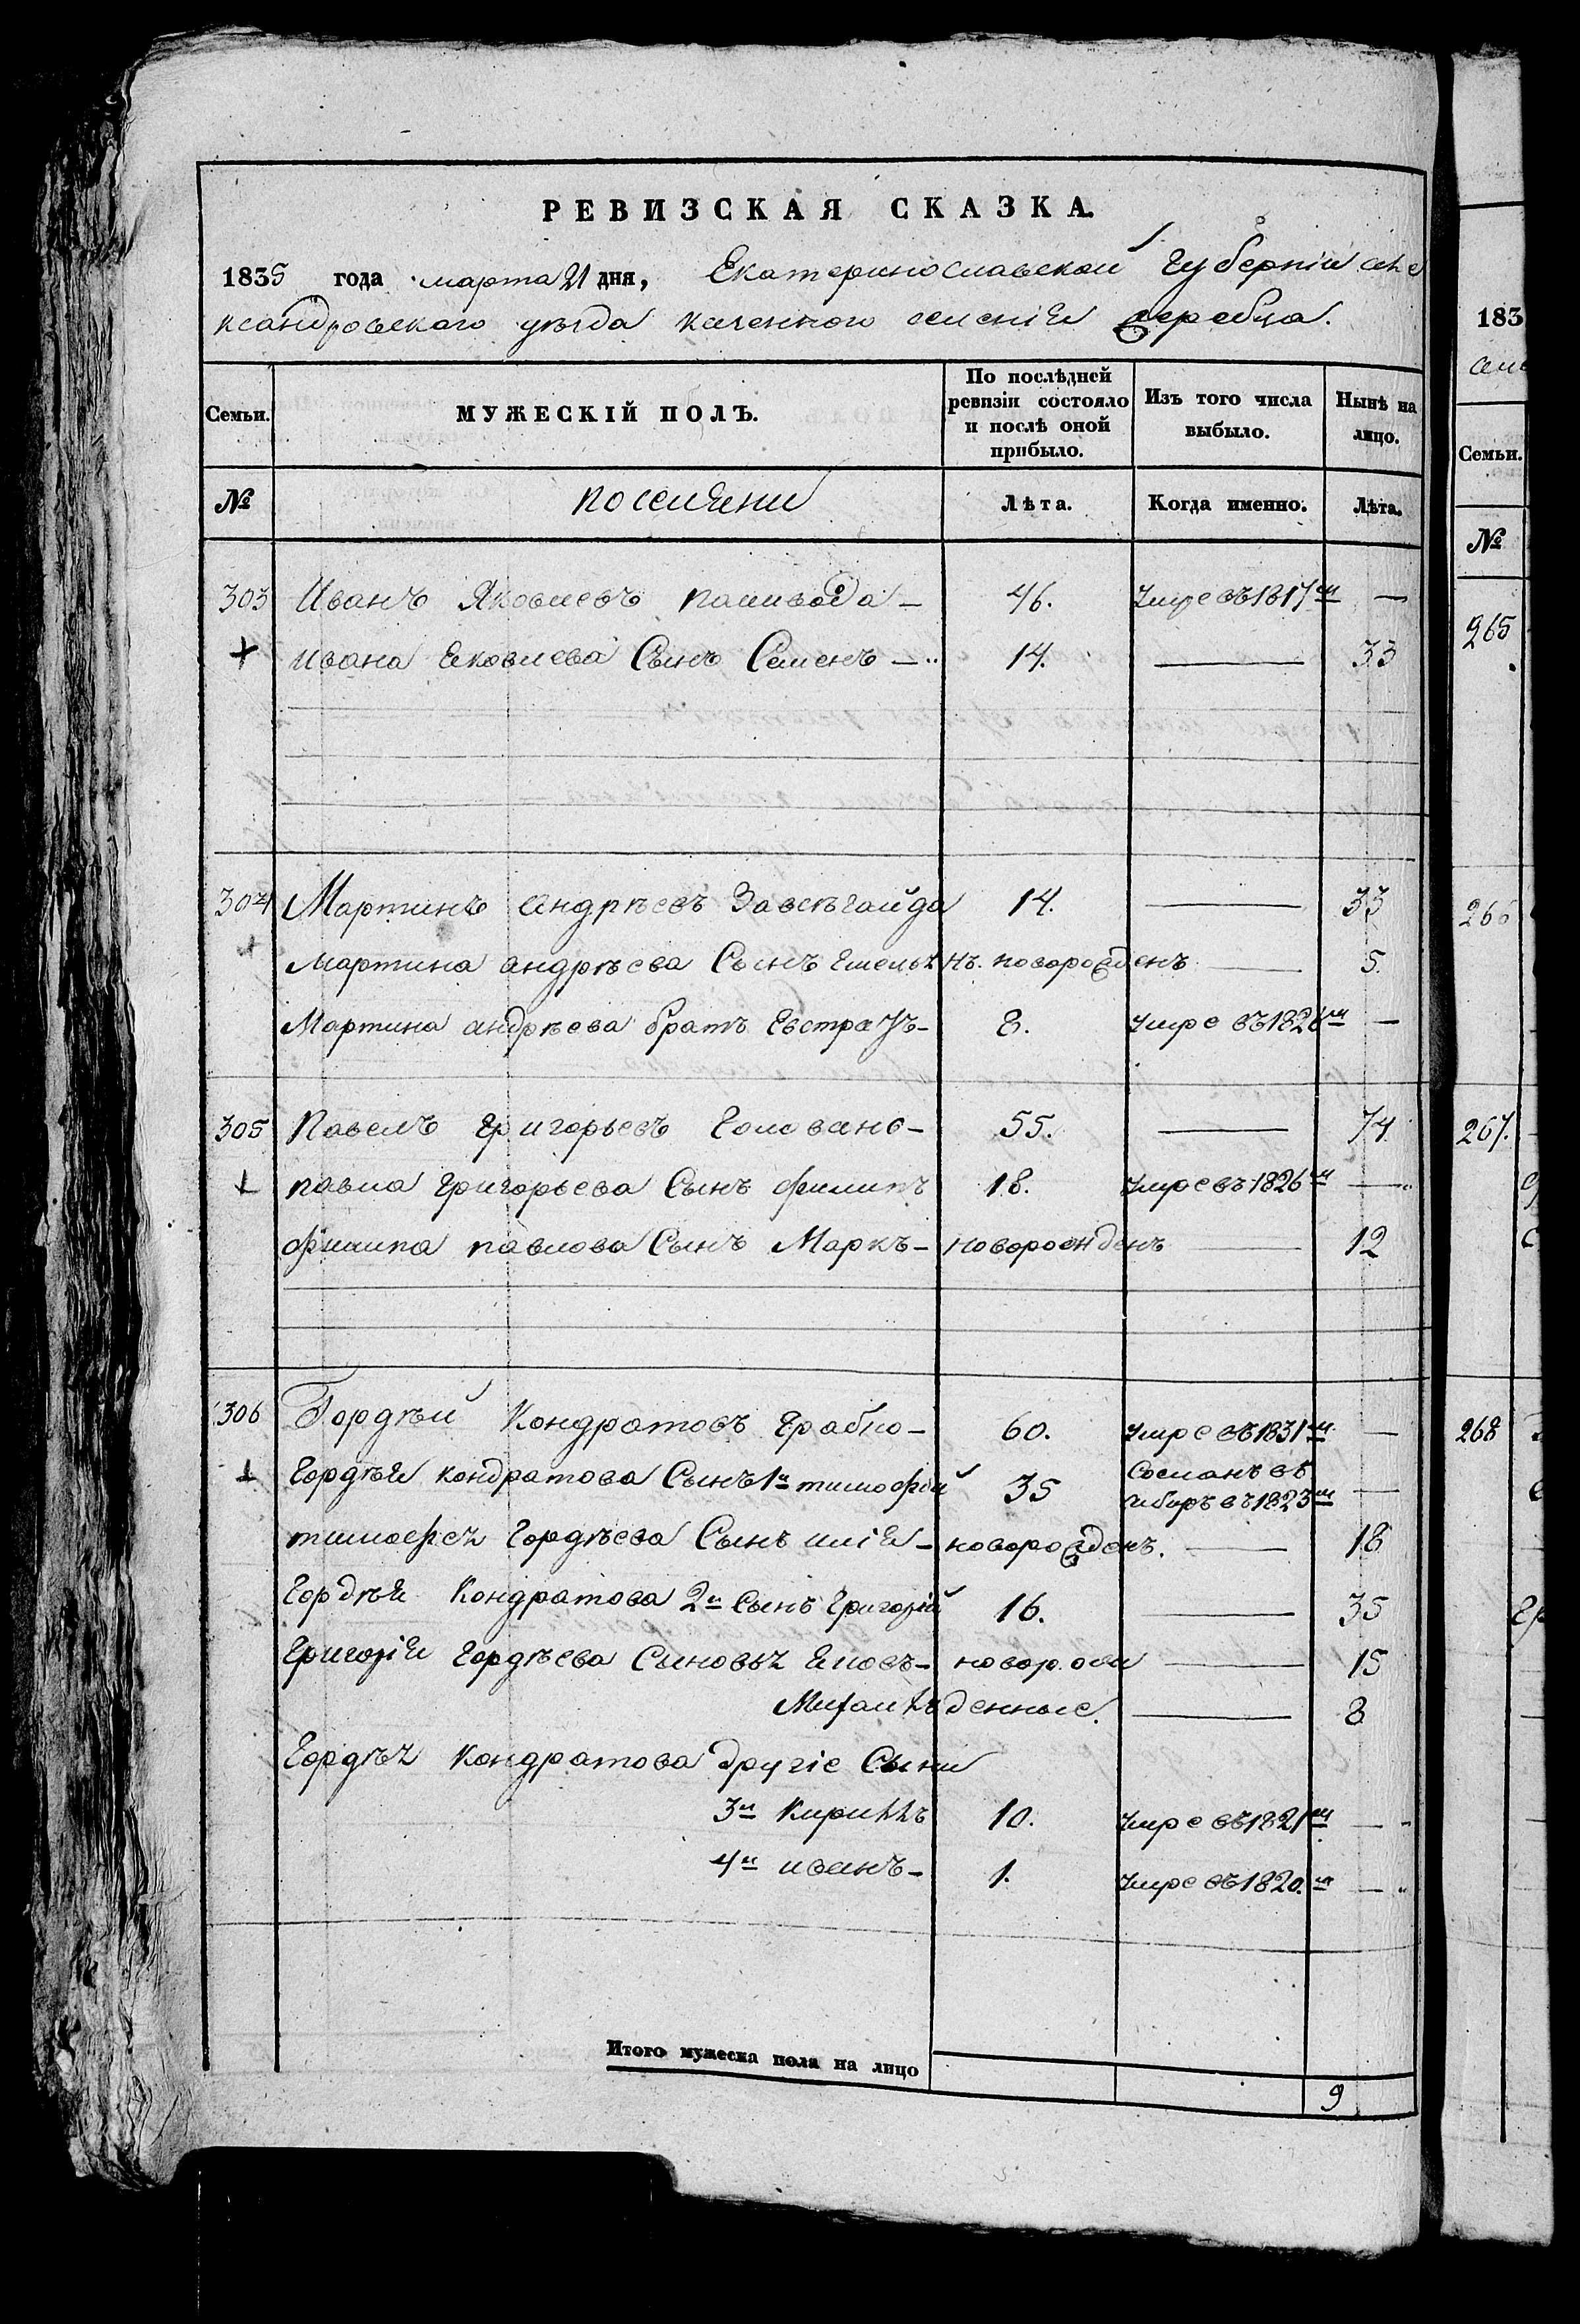 РЕВИЗСКАЯ СКАЗКА.
1835 года марта 21 дня, Екатеринославской губерніи але
ксандровского уѣзда казенного селенія жеребца.
Семьи. МУЖЕСКІЙ ПОЛЪ. По послѣдней ревизіи состояло и послѣ оной прибыло. Изъ того числа выбыло. Нынѣ на лицо.
№ поселяни Лѣта. Когда именно. Лѣта.
303 Иванъ Яковлевъ паливода 46. умре въ 1817м —
+ ивана яковлева Сынъ Семенъ 14. — 33
304 Мартинъ андрѣевъ 14. — 33
+ Мартина андрѣева Сынъ Емельянъ. новорожденъ — 5.
Мартина андрѣева братъ Евстрах 8. умре въ 1828м —
305 Павелъ григорьевъ Головань 55. — 74
+ павла григорьева Сынъ филипъ 18. умре въ 1826м —
филипа павлова Сынъ Маркъ новорожденъ — 12
306 Гордѣй Кондратовъ 60. умре въ 1831м —
+ Гордѣя кондратова Сынъ 1й тимофей 35 Сосланъ въ сибиръ въ 1823м —
тимофея Гордѣева Сынъ илія новорожденъ. — 18
Гордѣя Кондратова 2й Сынъ григорій 16. — 35
григорія гордѣева Сыновья яковъ новорож — 15
Михаилъ денные. — 8
Гордѣя Кондратова другіе Сыни
3й Кирилъ 10. умре въ 1821м —
4й иванъ 1. умре въ 1820м —
Итого мужеска пола на лицо 9
183
Семьи.
№
265
266
267.
268